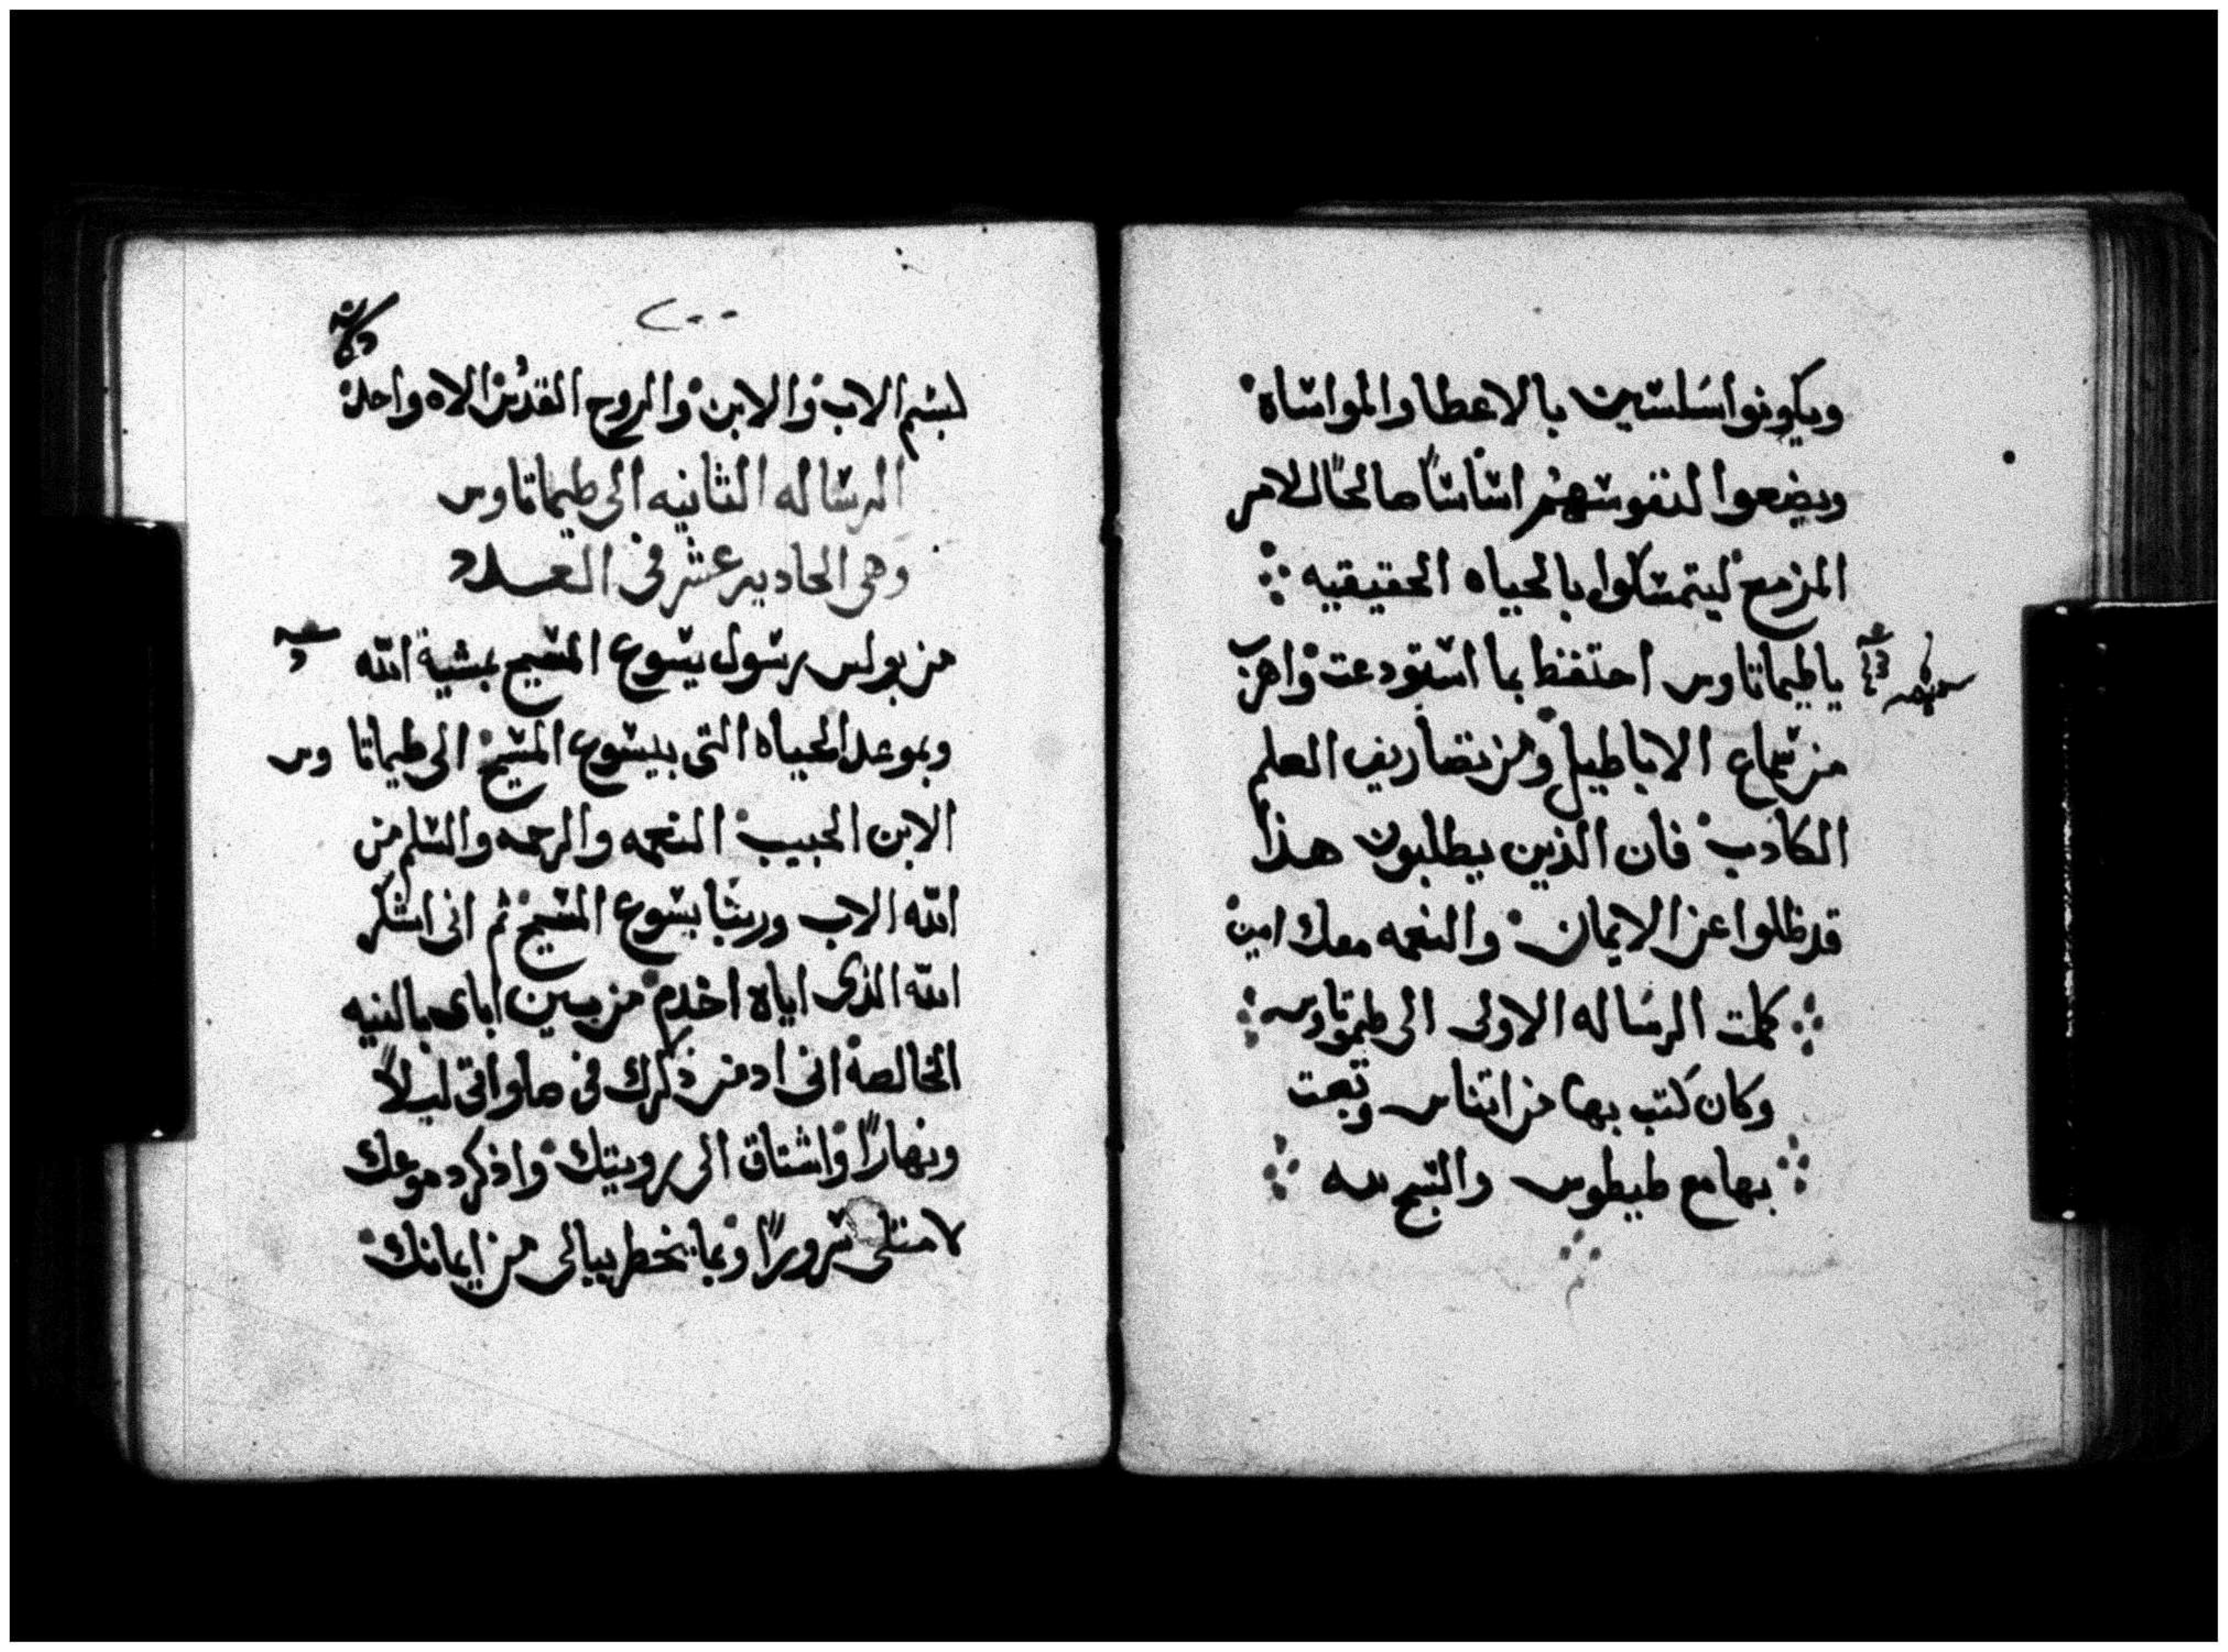 ويكونوا سلسين بالاعطا والمواساه
ويضعوا لنفوسهم اساسًا صالحًا للامر
المزمع ليتمسكوا بالحياه الحقيقيه
ياطيماتاوس احتفظ بما استودعت واهرب
من سماع الاباطيل ومن تصاريف العلم
الكاذب فان الذين يطلبون هذا
قد ظلوا عن الايمان والنعمه معك امين
كملت الرساله الاولى الى طيموتاوس
وكان كتب بها من اتناس وبعت
بها مع طيطوس والسبح لله
٢٠٠
لبسم الاب والابن والروح القدس الاه واحد
الرساله الثانيه الى طيماتاوس
وهى الحاديه عشر فى العدد
من بولس رسول يسوع المسيح بمشية الله
وبموعد الحياه التى بيسوع المسيح الى طيماتاوس
الابن الحبيب النعمه والرحمه والسلم من
الله الاب وربنا يسوع المسيح ثم انى اشكر
الله الذى اياه اخدم من بين اباى بالنيه
الخالصه انى ادمن ذكرك فى صلواتى ليلًا
ونهارًا واشتاق الى رويتك واذكر دموعك
لامتلى سرورًا وبما يخطر ببالى من ايمانك